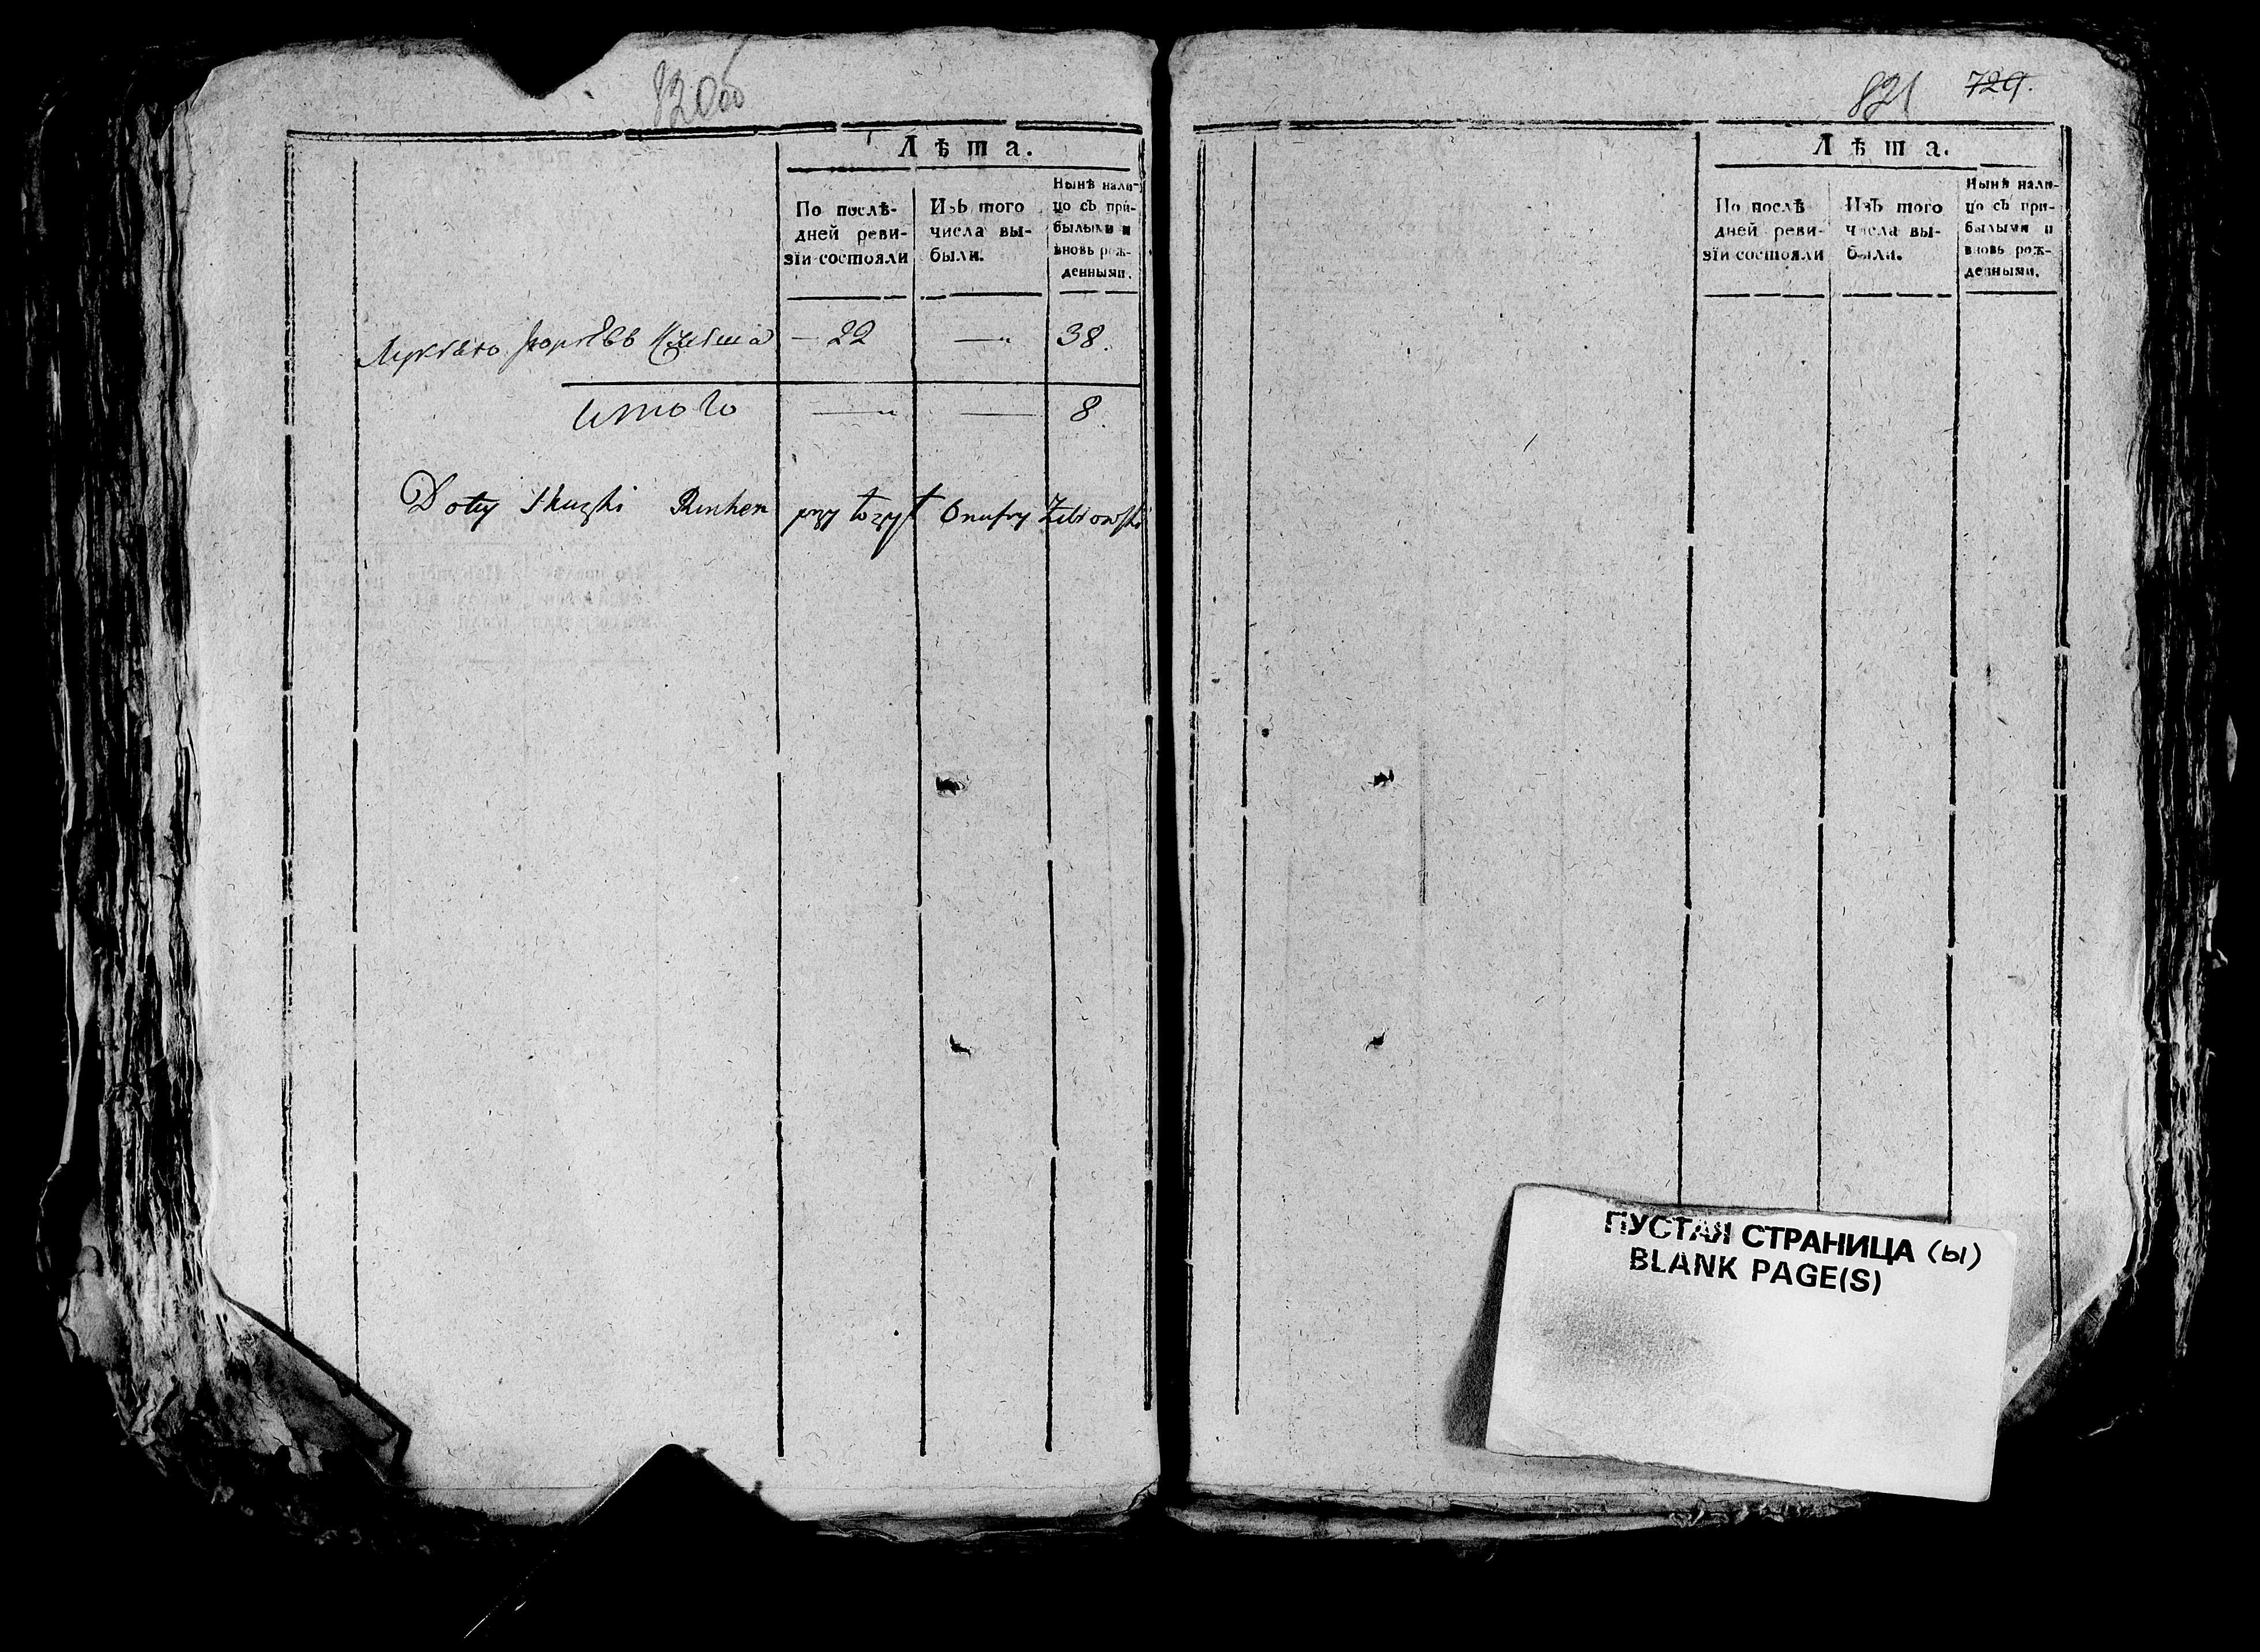 820об
Лѣта.
По послѣ-
дней реви-
зіи состояли
Изъ того
числа вы-
были.
Нынѣ нали-
цо съ при-
былыми и
вновь рож-
денными.
22 — 38.
Итого — — 8.
Doty przy Onufry
821 729.
Лѣта.
По послѣ
дней реви-
зіи состояли
Изъ того
числа вы-
были.
Нынѣ нали-
цо съ при-
былыми и
вновь рож-
денными.
ПУСТАЯ СТРАНИЦА (ы)
BLANK PAGE(S)